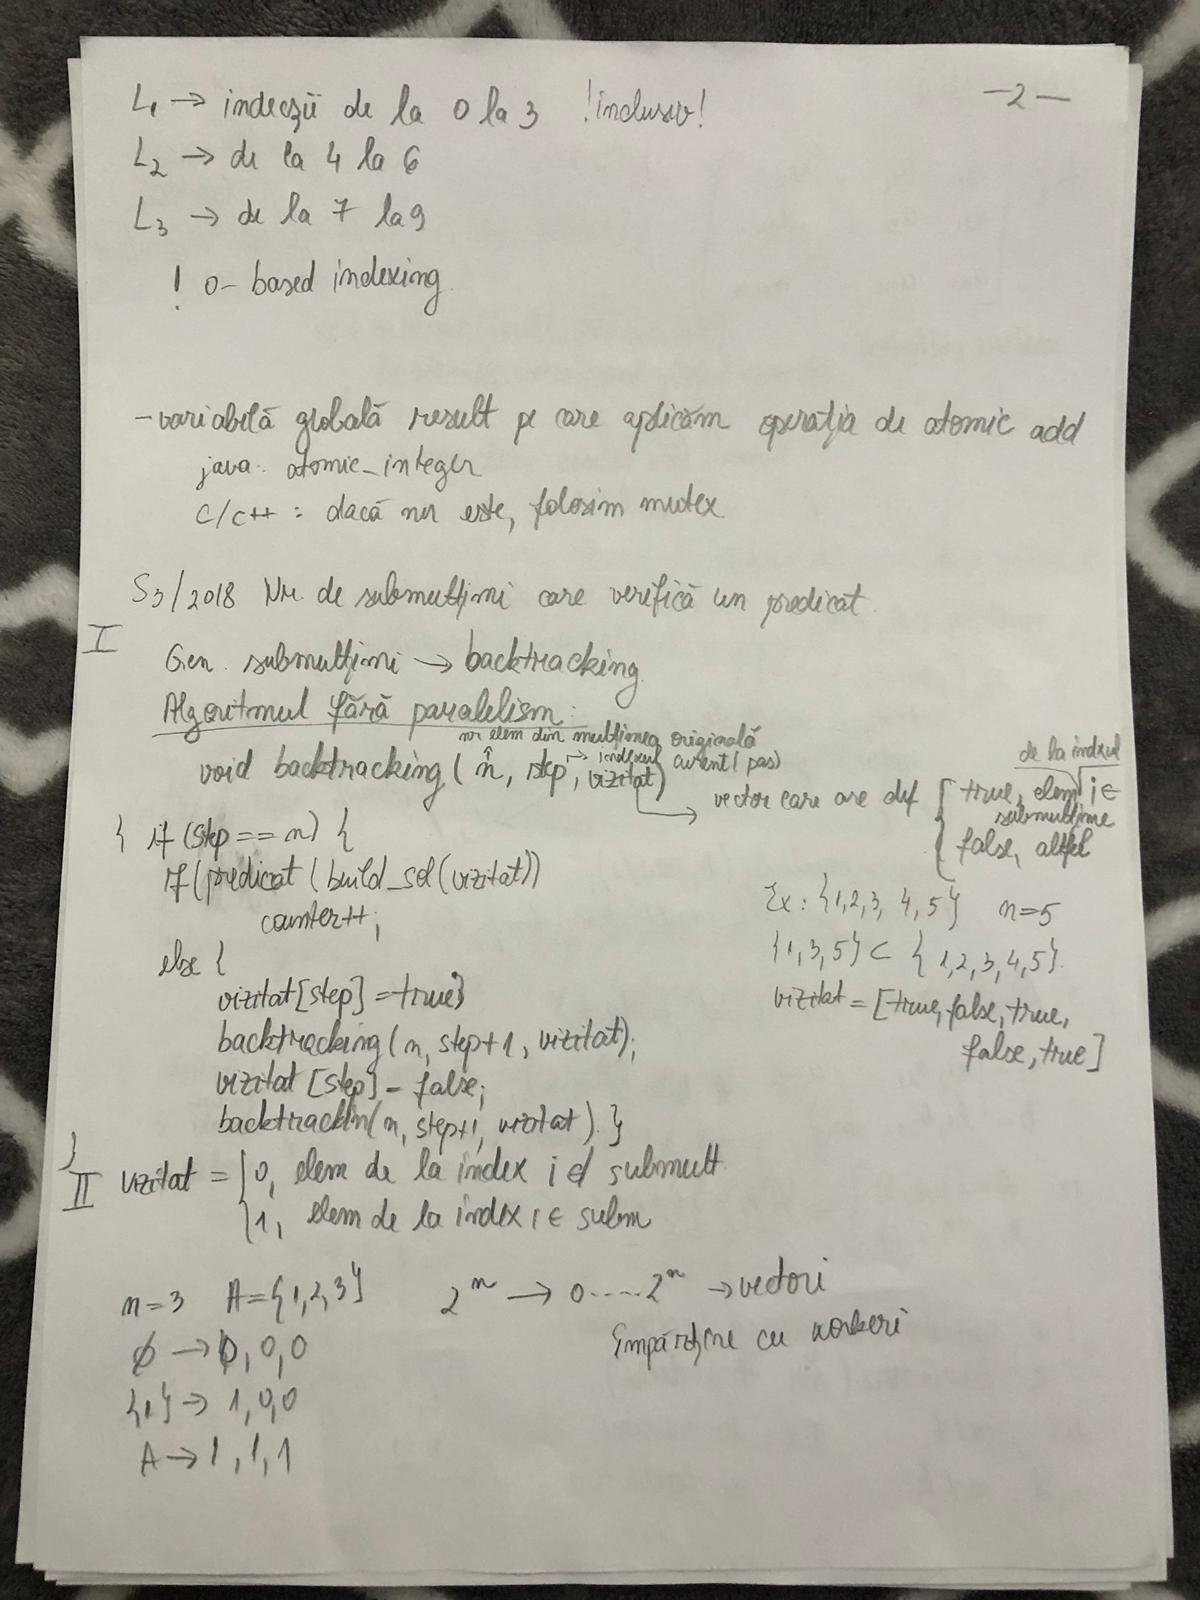 -2-
L1 → indecșii de la 0 la 3 !inclusiv!
L2 → de la 4 la 6
L3 → de la 7 la 9
! 0-based indexing.
- variabilă globală result pe care aplicăm operația de atomic add
java: atomic_integer
C/C++: dacă nu este, folosim mutex
S3/2018 Nr. de submulțimi care verifică un predicat.
I
Gen. submulțimi → backtracking
Algoritmul fără paralelism:
nr elem din mulțimea originală
void backtracking (n, step, vizitat)
→ indexul curent (pas)
→ vector care are def { true, elem i ∈
de la indexul
submulțime
false, altfel
{ if (step == n) {
if (predicat (build_sol(vizitat))
counter++;
else {
vizitat[step] = true;
backtracking (n, step+1, vizitat);
vizitat [step] = false;
backtrackin(n, step+1, vizitat). }
}
Ex: {1,2,3, 4,5} n=5
{1,3,5} ⊂ {1,2,3,4,5}.
vizitat = [true, false, true,
false, true]
II vizitat = { 0, elem de la index i ∉ submult
1, elem de la index i ∈ subm
n=3 A={1,2,3} 2^n → 0.....2^n → vectori
Împărțire cu workeri
∅ → 0, 0, 0
{1} → 1, 0, 0
A → 1, 1, 1